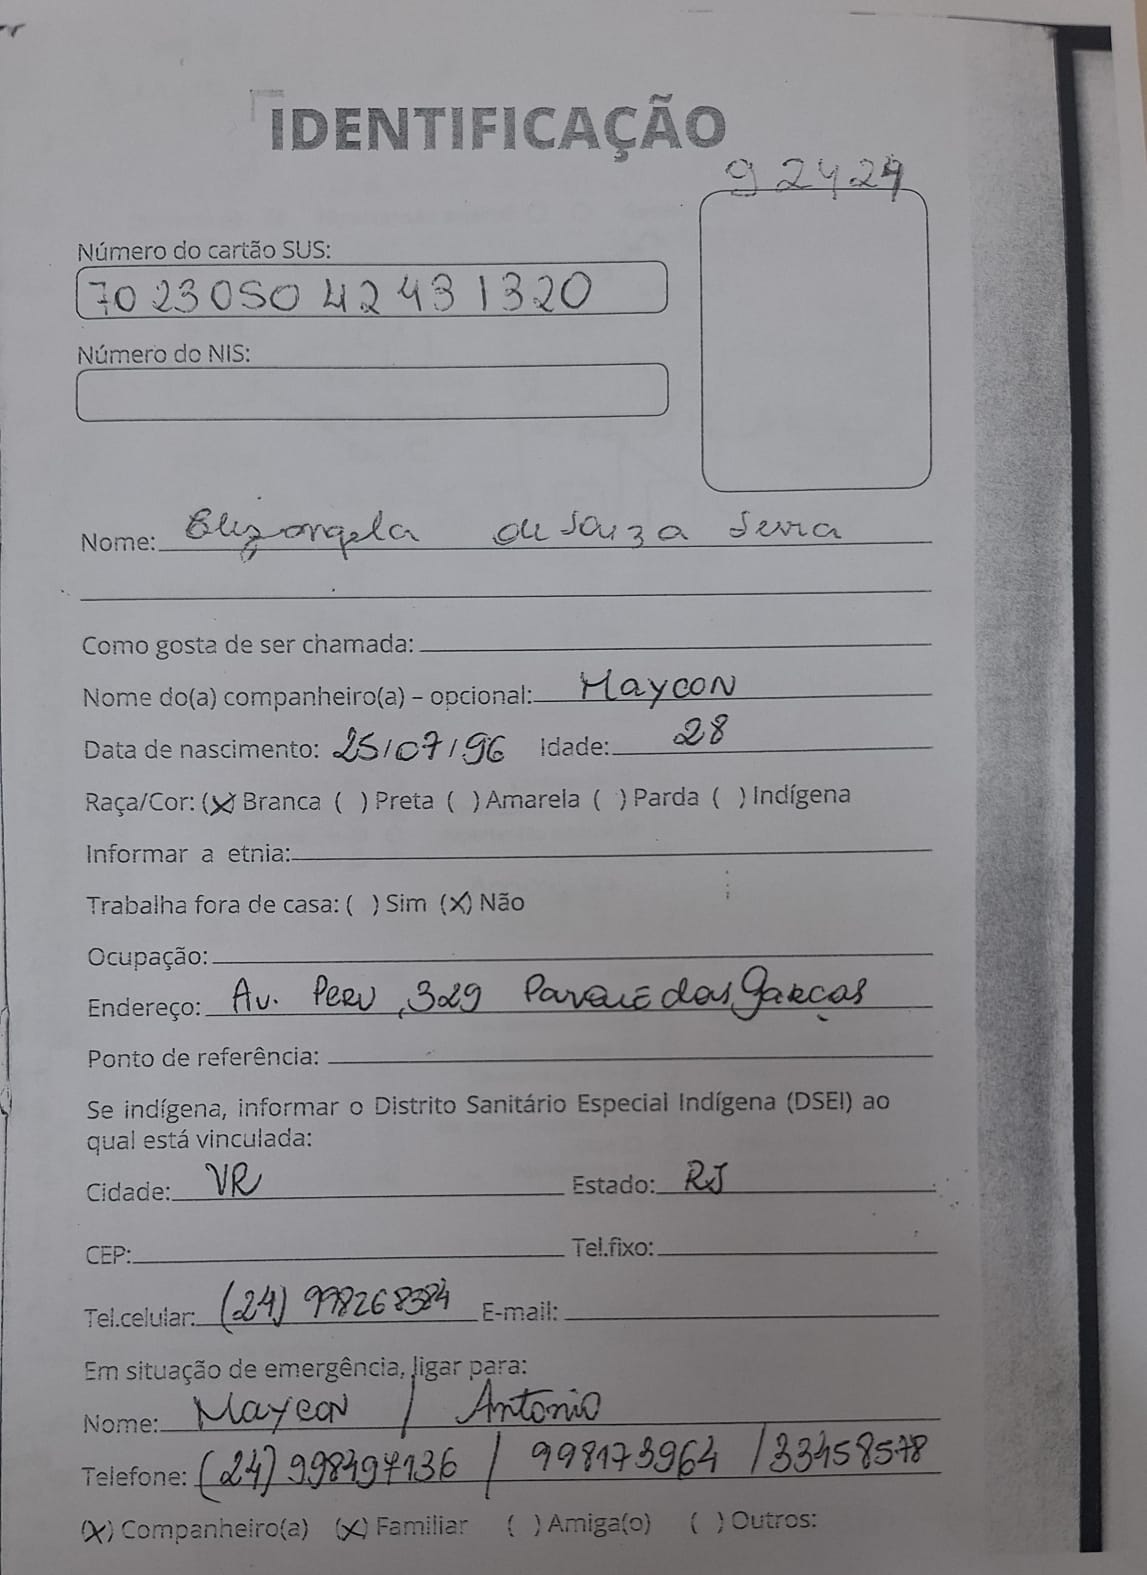 IDENTIFICAÇÃO
92424
Número do cartão SUS:
702305042431320
Número do NIS:
Nome: Elizangela de Souza Serra
Como gosta de ser chamada:
Nome do(a) companheiro(a) – opcional: Maycon
Data de nascimento: 25/07/96 Idade: 28
Raça/Cor: (X) Branca ( ) Preta ( ) Amarela ( ) Parda ( ) Indígena
Informar a etnia:
Trabalha fora de casa: ( ) Sim (X) Não
Ocupação:
Endereço: Av. Peru, 329 Parque das Garças
Ponto de referência:
Se indígena, informar o Distrito Sanitário Especial Indígena (DSEI) ao
qual está vinculada:
Cidade: VR Estado: RJ
CEP: Tel.fixo:
Tel.celular: (24) 998268384 E-mail:
Em situação de emergência, ligar para:
Nome: Maycon / Antonio
Telefone: (24) 998397136 / 998173964 / 33458578
(X) Companheiro(a) (X) Familiar ( ) Amiga(o) ( ) Outros: